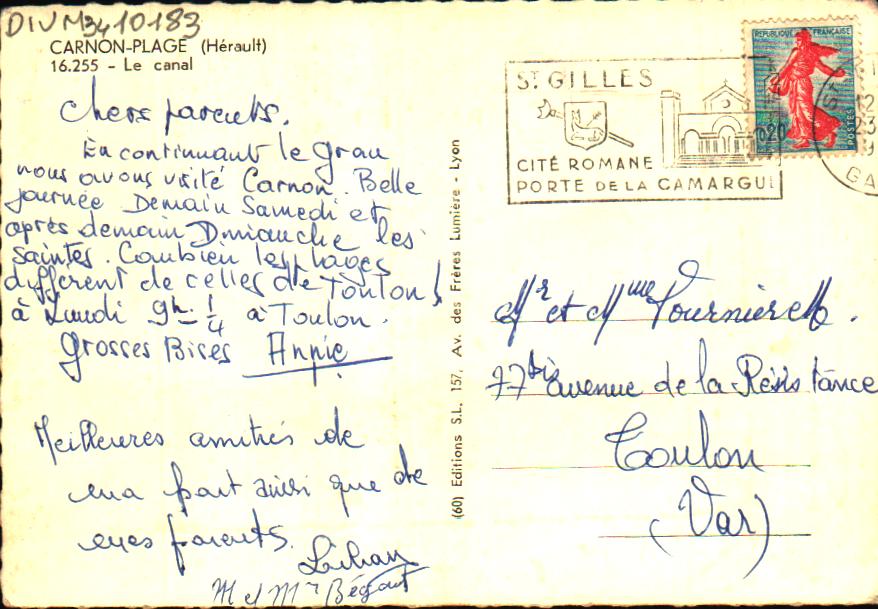 DIVM3410183
CARNON-PLAGE (Hérault)
16.255 - Le canal
Chers parents.
En continuant le Grau
nous avons visité Carnon. Belle
journée. Demain Samedi et
après demain Dimanche les
Saintes. Combien les plages
diffèrent de celles de Toulon!
à Lundi 9h 1/4 à Toulon.
Grosses Bises Annie
Meilleures amitiés de
ma part ainsi que de
mes parents.
M et Mr
(60) Editions S.L. 157, Av. des Frères Lumière - Lyon
ST GILLES
CITÉ ROMANE
PORTE DE LA CAMARGUE
REPUBLIQUE FRANÇAISE
0,20
POSTES
12
23
GA
Mr et Mme Fournier M.
77bis avenue de la Résistance
Toulon
(Var)